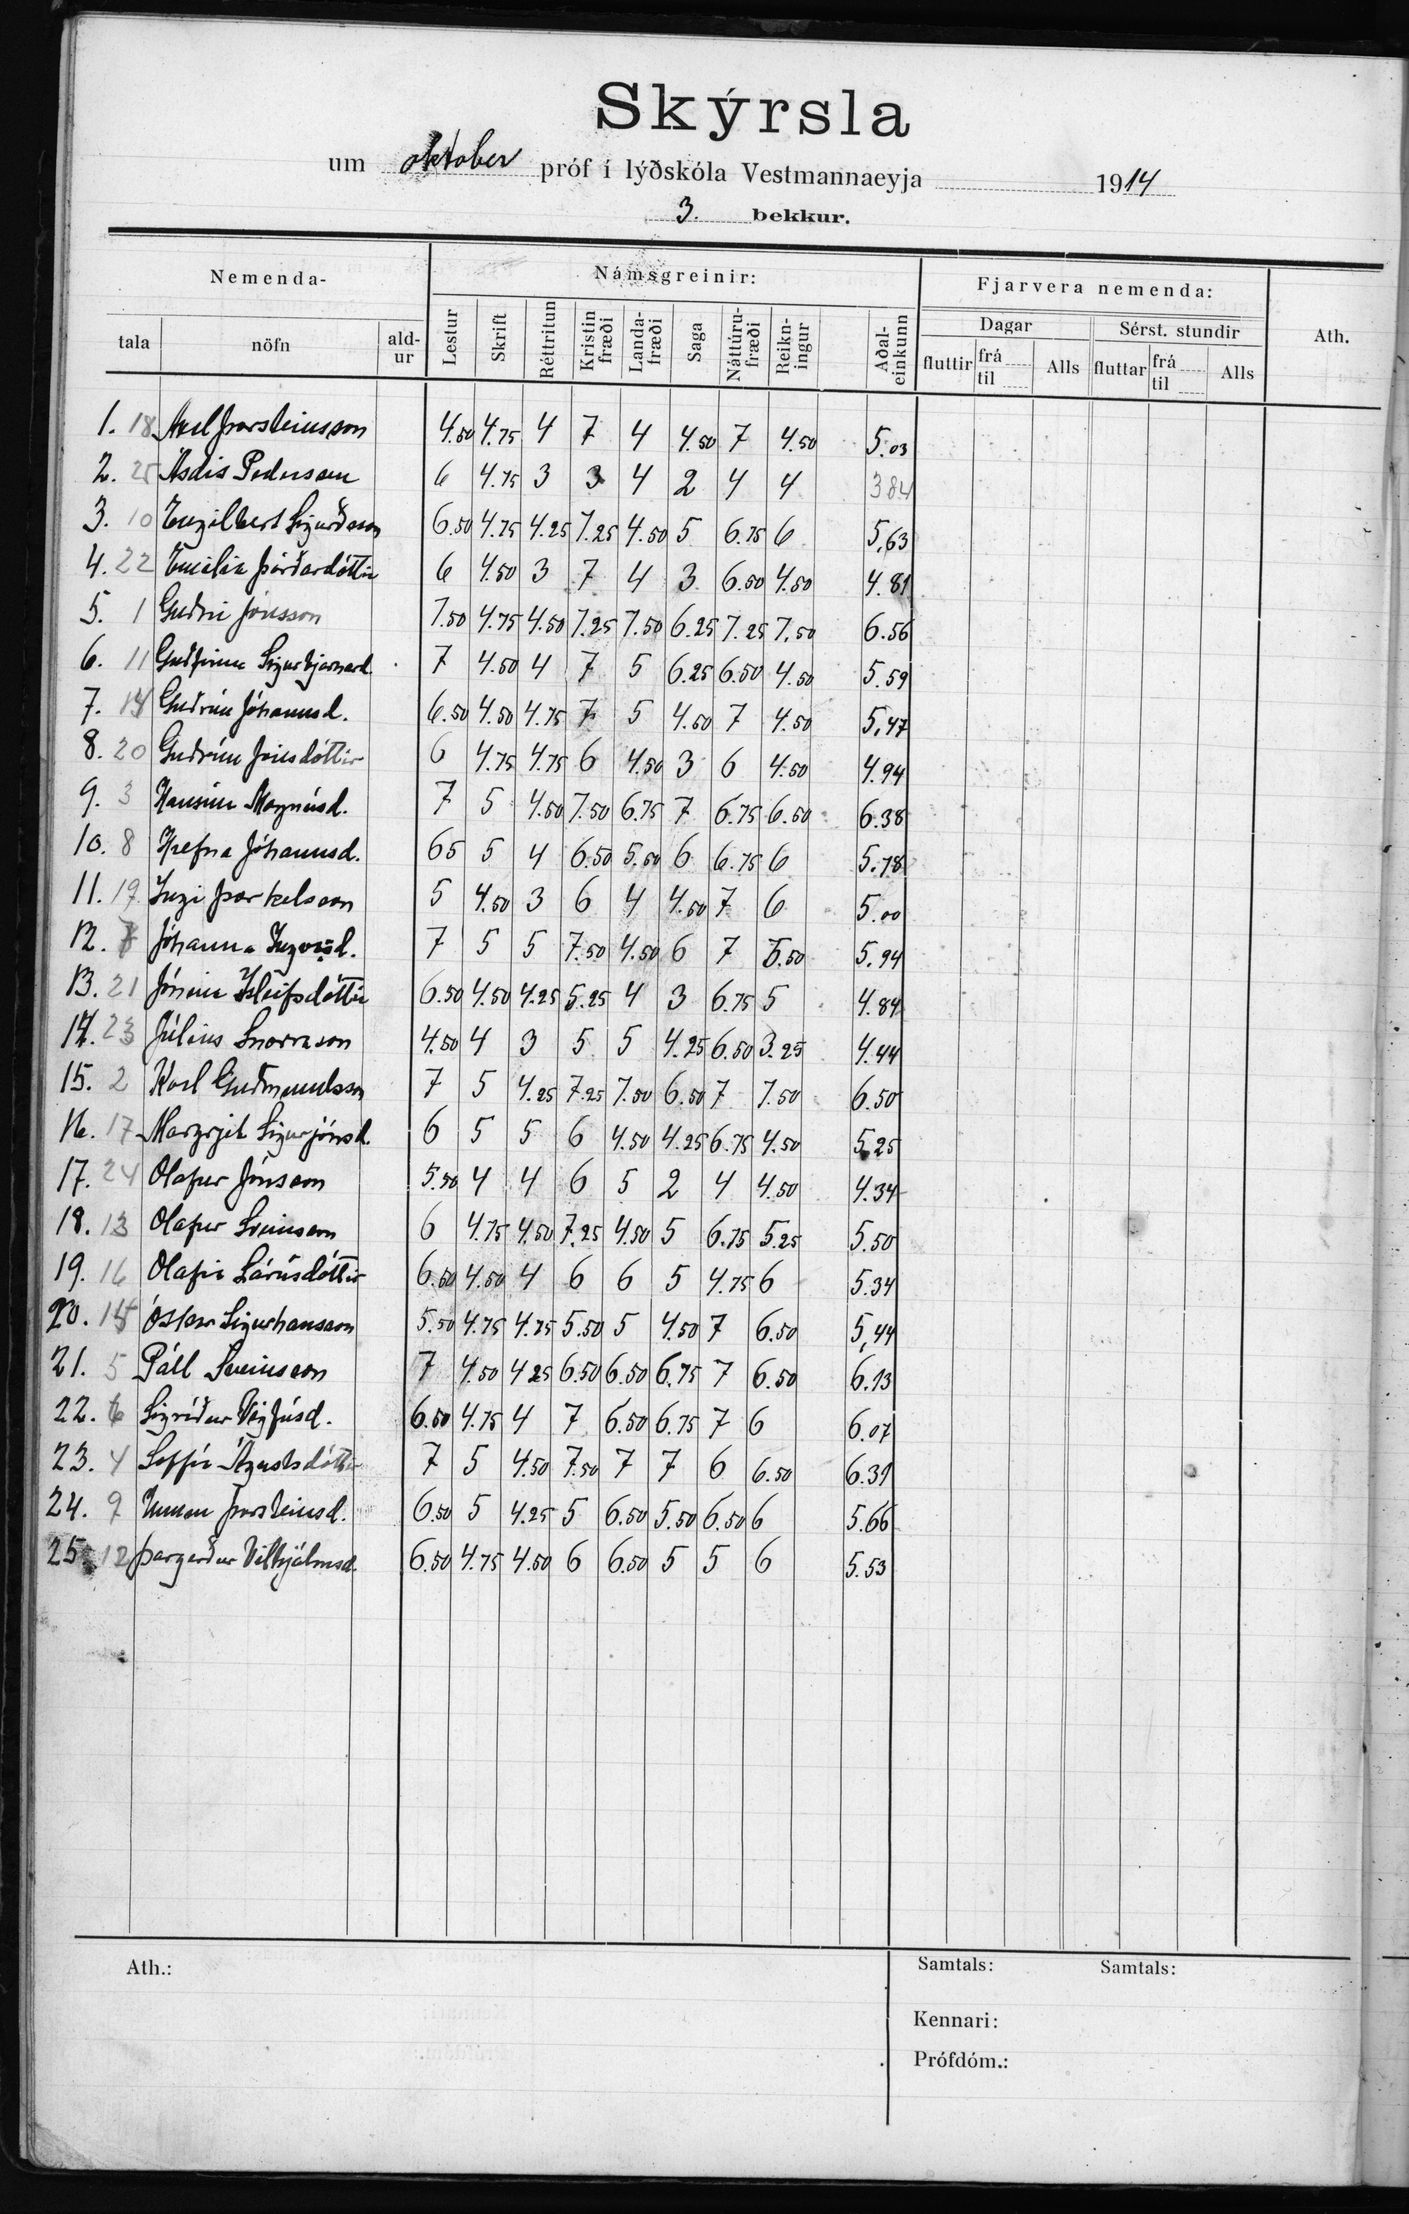 Skýrsla
um oktober próf í lýðskóla Vestmannaeyja 1914
3. bekkur.
Nemenda- Námsgreinir: Fjarvera nemenda: Ath.
tala nöfn ald-ur Lestur Skrift Réttritun Kristin fræði Landa-fræði Saga Náttúru-fræði Reikn-ingur Aðal-einkunn Dagar Sérst. stundir
fluttir frá til Alls fluttar frá til Alls
1. 18 Axel Þorsteinsson 4.50 4.75 4 7 4 4.50 7 4.50 5.03
2. 25 Ásdís Pedersen 6 4.75 3 3 4 2 4 4 384
3. 10 Engilbert Sigurðsson 6.50 4.75 4.25 7.25 4.50 5 6.75 6 5,63
4. 22 Emilía Þórðardóttir 6 4.50 3 7 4 3 6.50 4.50 4.81
5. 1 Guðni Jónsson 7.50 4.75 4.50 7.25 7.50 6.25 7.25 7.50 6.56
6. 11 Guðfinna Sigurbjarnard. 7 4.50 4 7 5 6.25 6.50 4.50 5.59
7. 14 Guðrún Jóhannsd. 6.50 4.50 4.75 7 5 4.50 7 4.50 5,47
8. 20 Guðrún Jónsdóttir 6 4.75 4.75 6 4.50 3 6 4.50 4.94
9. 3 Hansína Magnúsd. 7 5 4.50 7.50 6.75 7 6.75 6.50 6.38
10. 8 Hrefna Jóhannsd. 65 5 4 6.50 5.50 6 6.75 6 5.78
11. 19 Ingi Þorkelsson 5 4.50 3 6 4 4.50 7 6 5.00
12. 7 Jóhanna Ingvarsd. 7 5 5 7.50 4.50 6 7 5.50 5.94
13. 21 Jónína Ísleifsdóttir 6.50 4.50 4.25 5.25 4 3 6.75 5 4.84
14. 23 Júlíus Snorrason 4.50 4 3 5 5 4.25 6.50 3.25 4.44
15. 2 Karl Guðmundsson 7 5 4.25 7.25 7.50 6.50 7 7.50 6.50
16. 17 Margrjet Sigurjónsd. 6 5 5 6 4.50 4.25 6.75 4.50 5.25
17. 24 Olafur Jónsson 5.50 4 4 6 5 2 4 4.50 4.34
18. 13 Olafur Sveinsson 6 4.75 4.50 7.25 4.50 5 6.75 5.25 5.50
19. 16 Olafía Lárúsdóttir 6.50 4.50 4 6 6 5 4.75 6 5.34
20. 15 Óskar Sigurhansson 5.50 4.75 4.25 5.50 5 4.50 7 6.50 5,44
21. 5 Páll Sveinsson 7 4.50 4 25 6.50 6.50 6.75 7 6.50 6.13
22. 6 Sigríður Vigfúsd. 6.50 4.75 4 7 6.50 6.75 7 6 6.07
23. 4 Soffía Ágústsdóttir 7 5 4.50 7.50 7 7 6 6.50 6.31
24. 9 Unnur Þorsteinsd. 6.50 5 4.25 5 6.50 5.50 6.50 6 5.66
25. 12 Þorgerður Vilhjálmsd. 6.50 4.75 4.50 6 6.50 5 5 6 5.53
Ath.: Samtals: Samtals:
Kennari:
Prófdóm.: